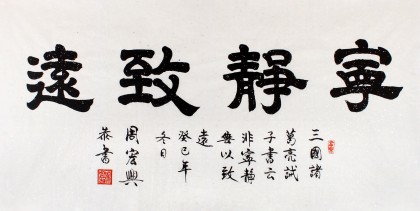 寧靜致遠
三國諸
葛亮誡
子書云
非寧靜
無以致
遠
癸巳年
冬月
周宏興
恭書